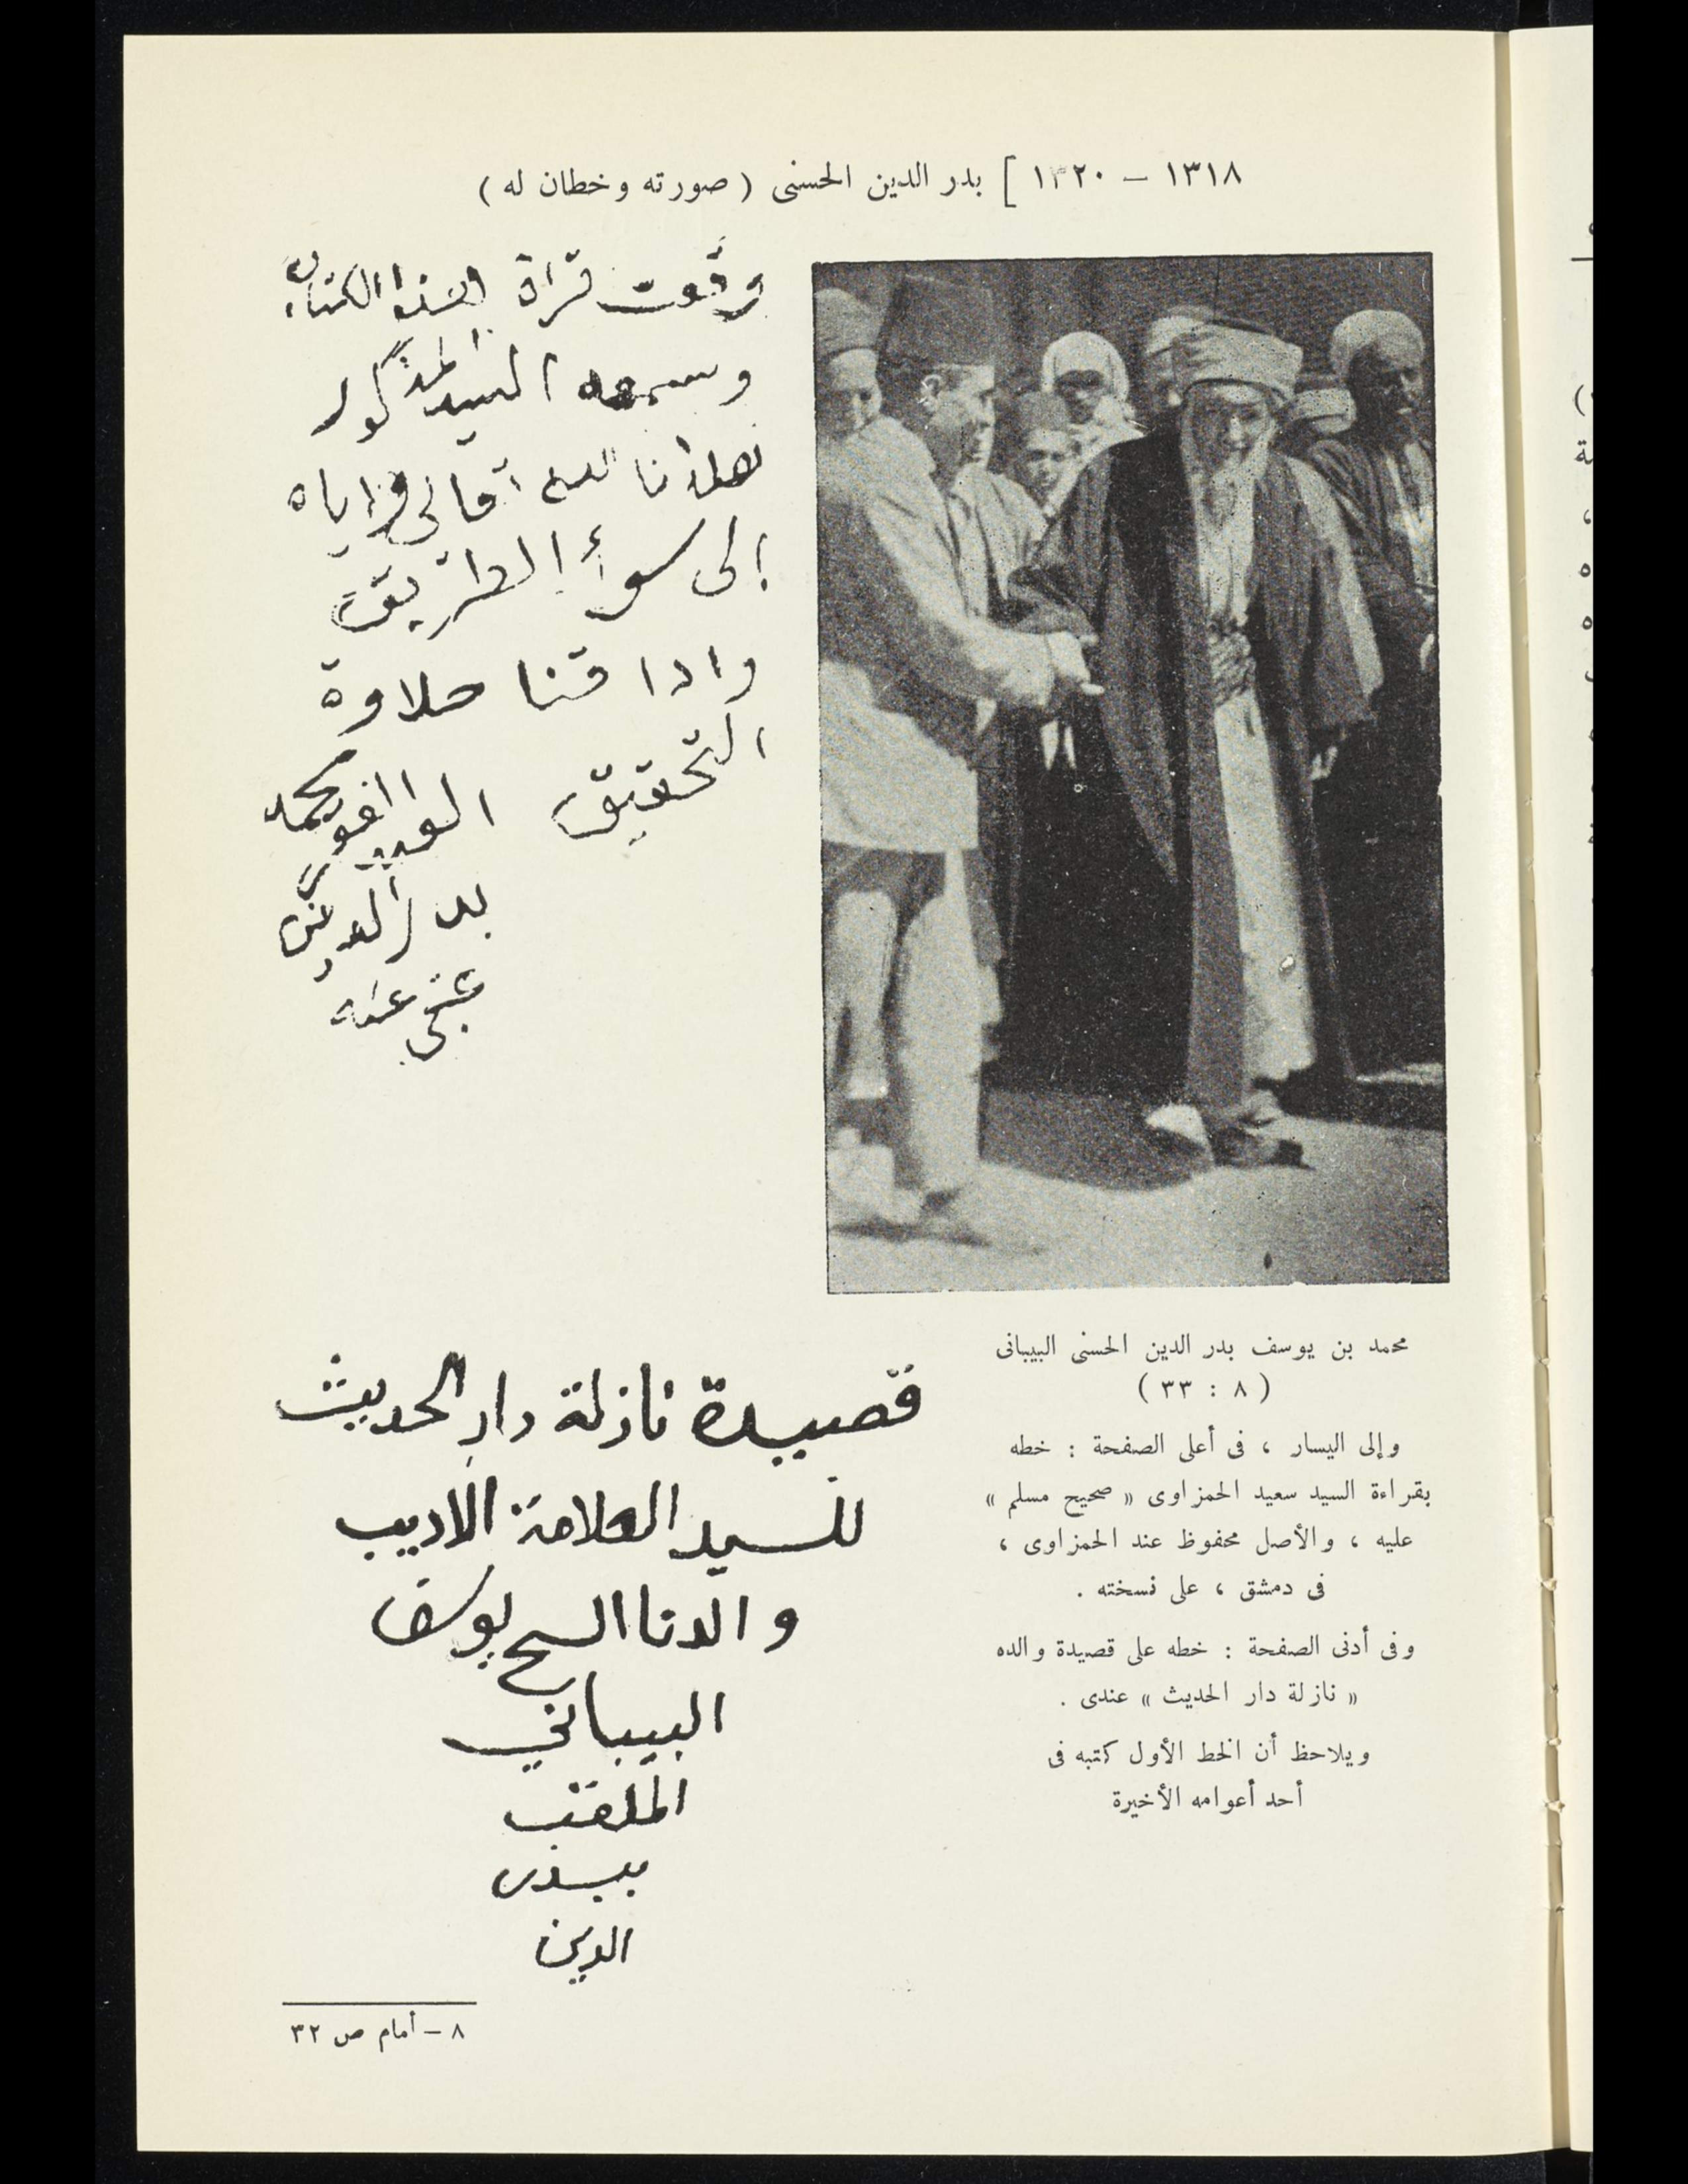 ١٣١٨ – ١٣٢٠ ] بدر الدين الحسنى ( صورته وخطان له )
وقعت قراة لهذا الكتاب
وسمعه السيد المذكور
الله تعالى واياه
إلى سوأ الطريق
واذاقنا حلاوة
التحقيق العبد محمد
بدر الدين
عفى عنه
محمد بن يوسف بدر الدين الحسنى البيبانى
( ٨ : ٣٣ )
وإلى اليسار ، فى أعلى الصفحة : خطه
بقراءة السيد سعيد الحمزاوى « صحيح مسلم »
عليه ، والأصل محفوظ عند الحمزاوى ،
فى دمشق ، على نسخته .
وفى أدنى الصفحة : خطه على قصيدة والده
« نازلة دار الحديث » عندى .
ويلاحظ أن الخط الأول كتبه فى
أحد أعوامه الأخيرة
قصيدة نازلة دار الحديث
للسيد العلامة الاديب
والدنا الشيخ يوسف
البيباني
الملقب
ببدر
الدين
٨ – أمام ص ٣٢